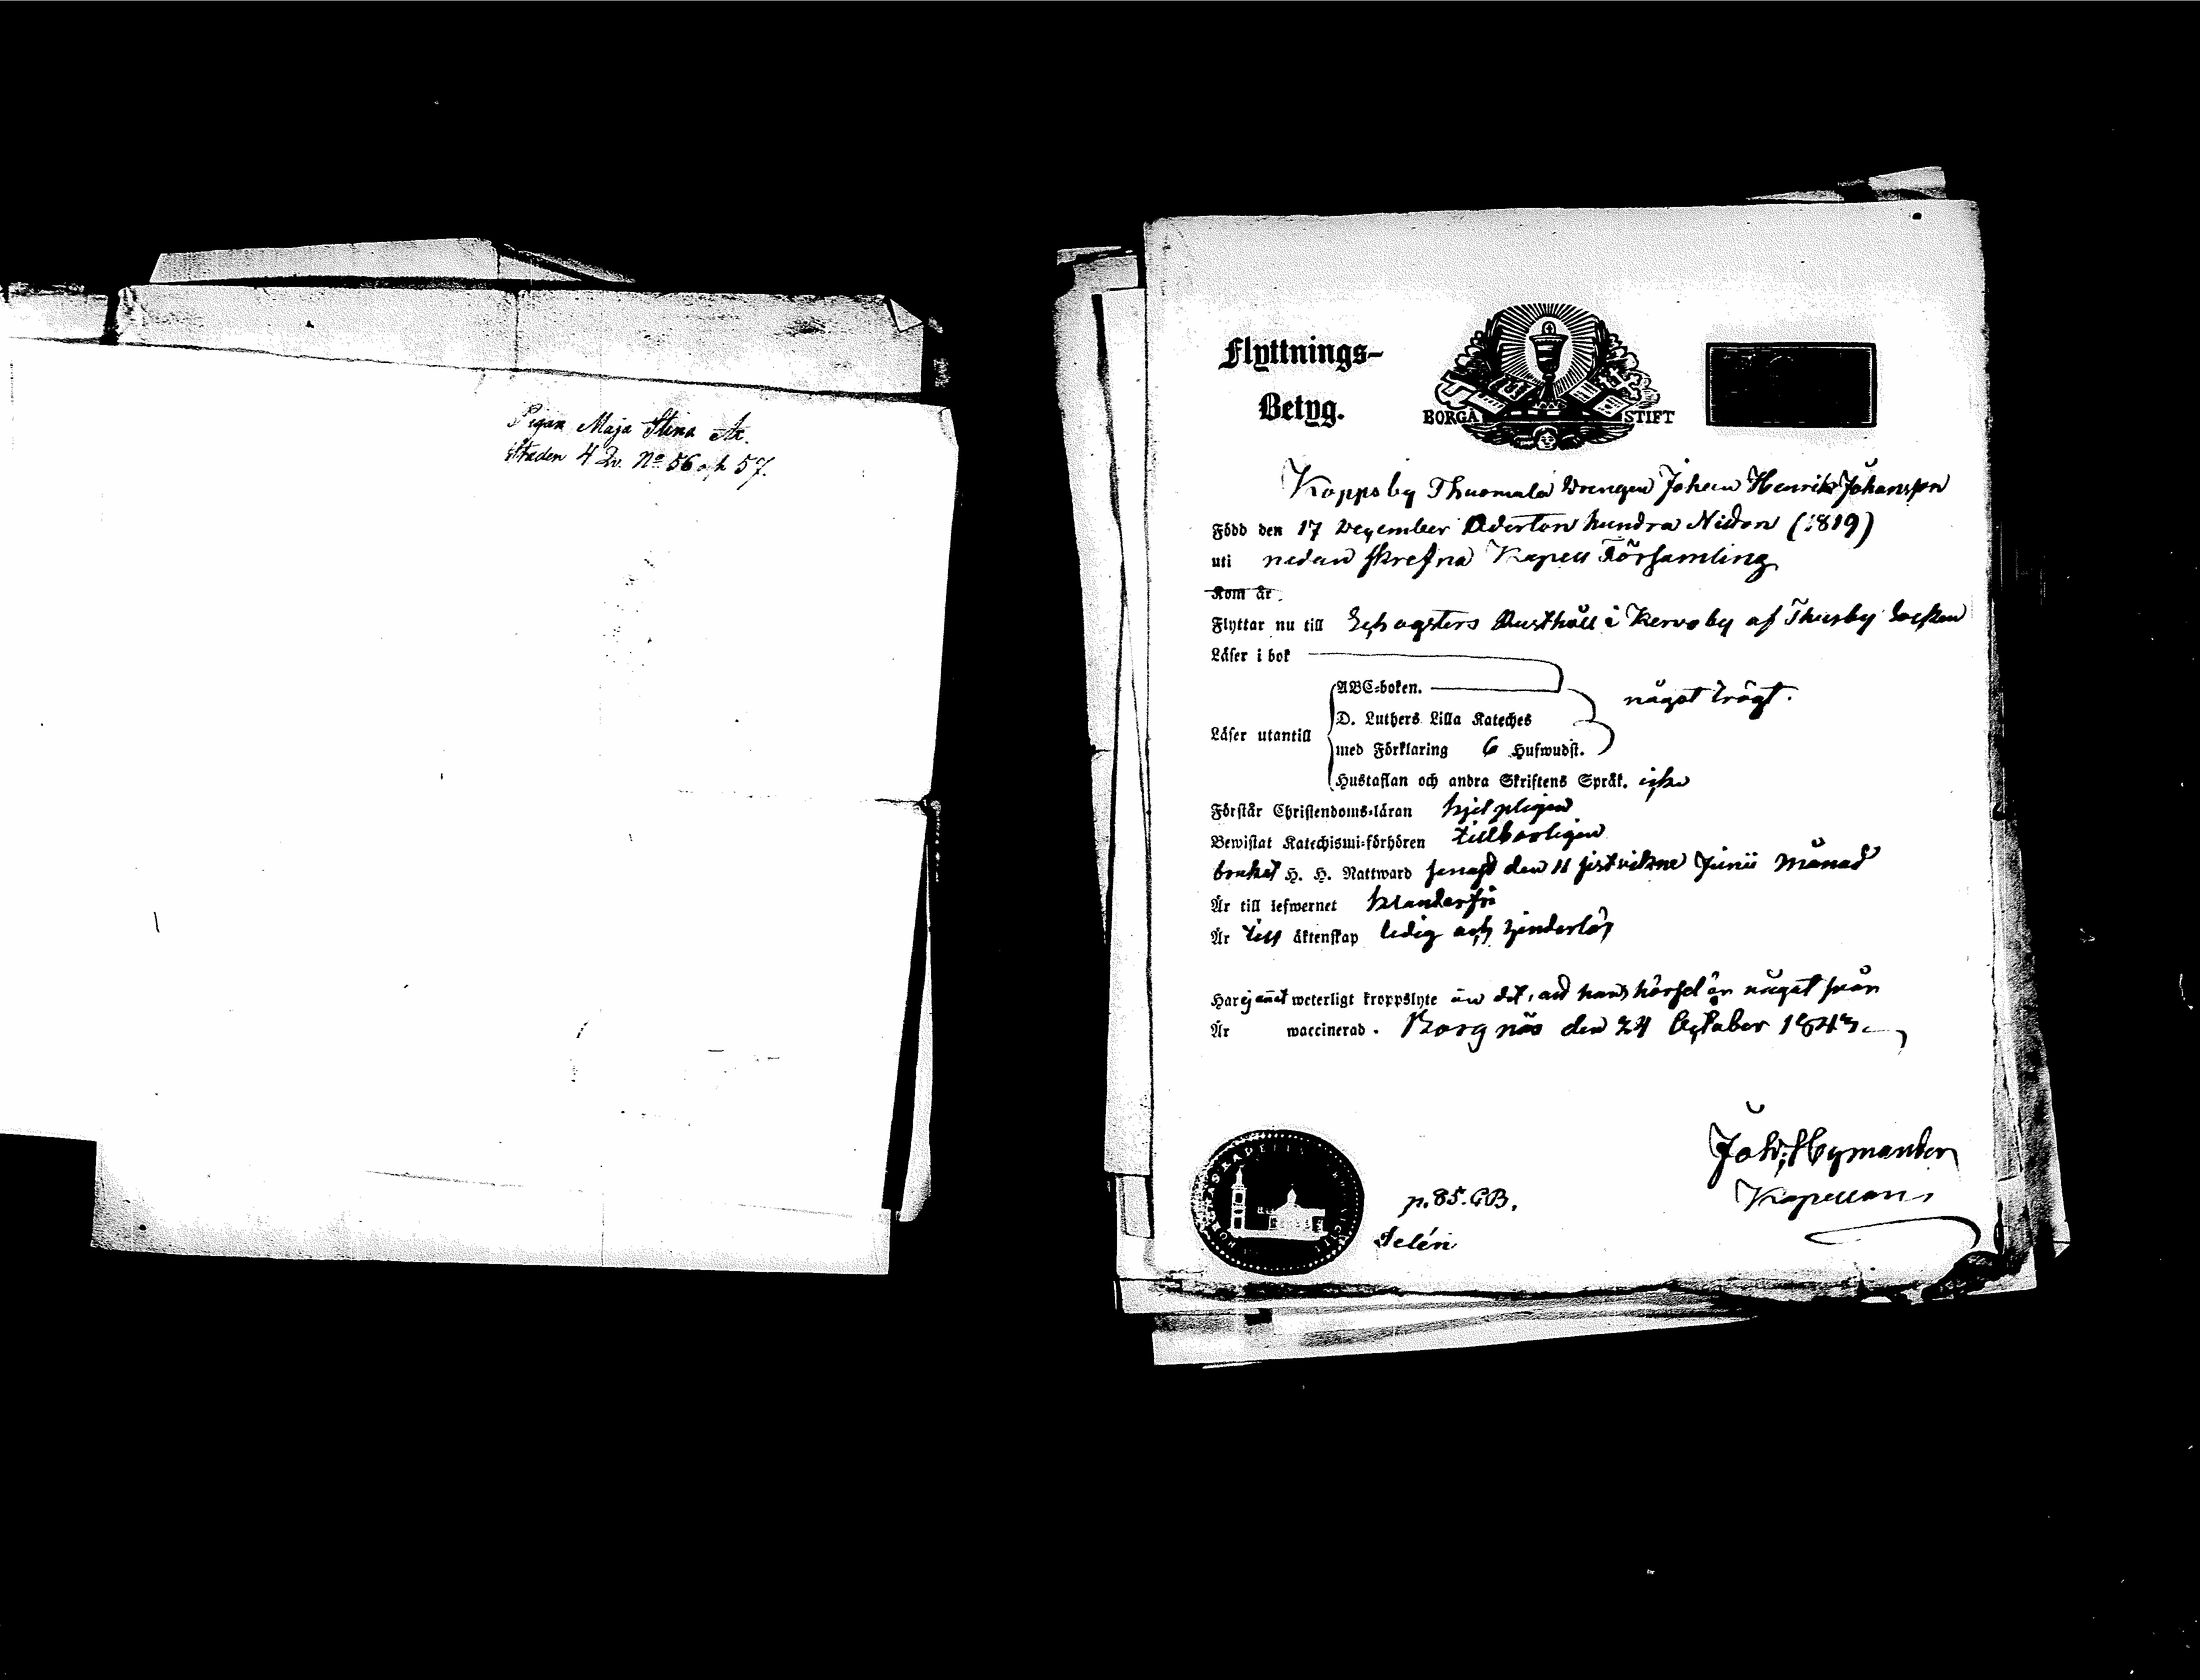 Pigan Maja Stina
Staden 4 Qv. No 56 och 57.
Flyttnings-
Betyg.
BORGÅ STIFT
Koppsby Thuomala Drengen Johan Henrik Johansson
Född den 17 December Adertonhundra Nitton (1819)
uti nedanskrefna Kapell Församling
Kom år
Flyttar nu till Rusthåll i Kervoby af Thusby Socken
Läser i bok
ABC-boken.
något trögt.
D. Luthers Lilla Kateches
Läser utantill
med Förklaring 6 Hufwudst.
Hustaflan och andra Skriftens Språk. icke
Förstår Christendoms-läran hjelpligen
Bewistat Katechismi-förhören tillbörligen
brukat H. H. Nattward senast den 11 sistvikne Junii Månad
Är till lefwernet klanderfri
Är till äktenskap ledig och hinderlös
Har ej annat weterligt kroppslyte än det, att hans hörsel är något svår
Är waccinerad. Borgnäs den 24 October 1843.
Joh. Hymander
Kapellan
p. 85. GB.
Selén